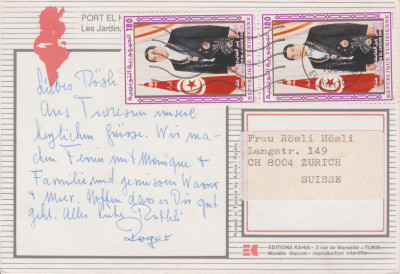 PORT EL
Les Jardins
180
الجمهورية التونسية
REPUBLIQUE TUNISIENNE
180
الجمهورية التونسية
REPUBLIQUE TUNISIENNE
Liebes Rösli
Aus Tunesien unsere
herzlichen Grüsse. Wir ma-
chen Ferien mit Monique &
Familie und geniessen Wasser
& Meer. Hoffen dass es Dir gut
geht. Alles Liebe Ruthli
Roger
Frau Rösli Hösli
Langstr. 149
CH 8004 ZURICH
SUISSE
EDITIONS KAHIA - 2 rue de Marseille - TUNIS
Modèle déposé - reproduction interdite